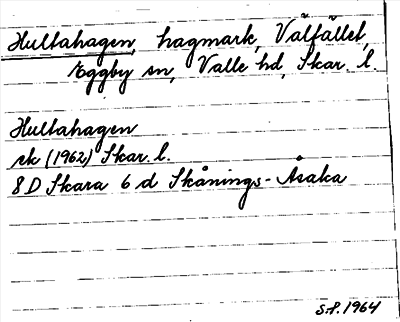 Hultahagen, hagmark, Välfället,
Eggby sn, Valle hd, Skar. l.
Hultahagen
ek (1962) Skar. l.
8D Skara 6 d Skånings-Åsaka
S.F. 1964